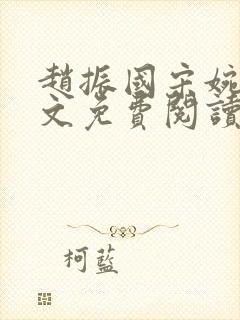 趙振國宋婉
文免費閱讀
柯藍